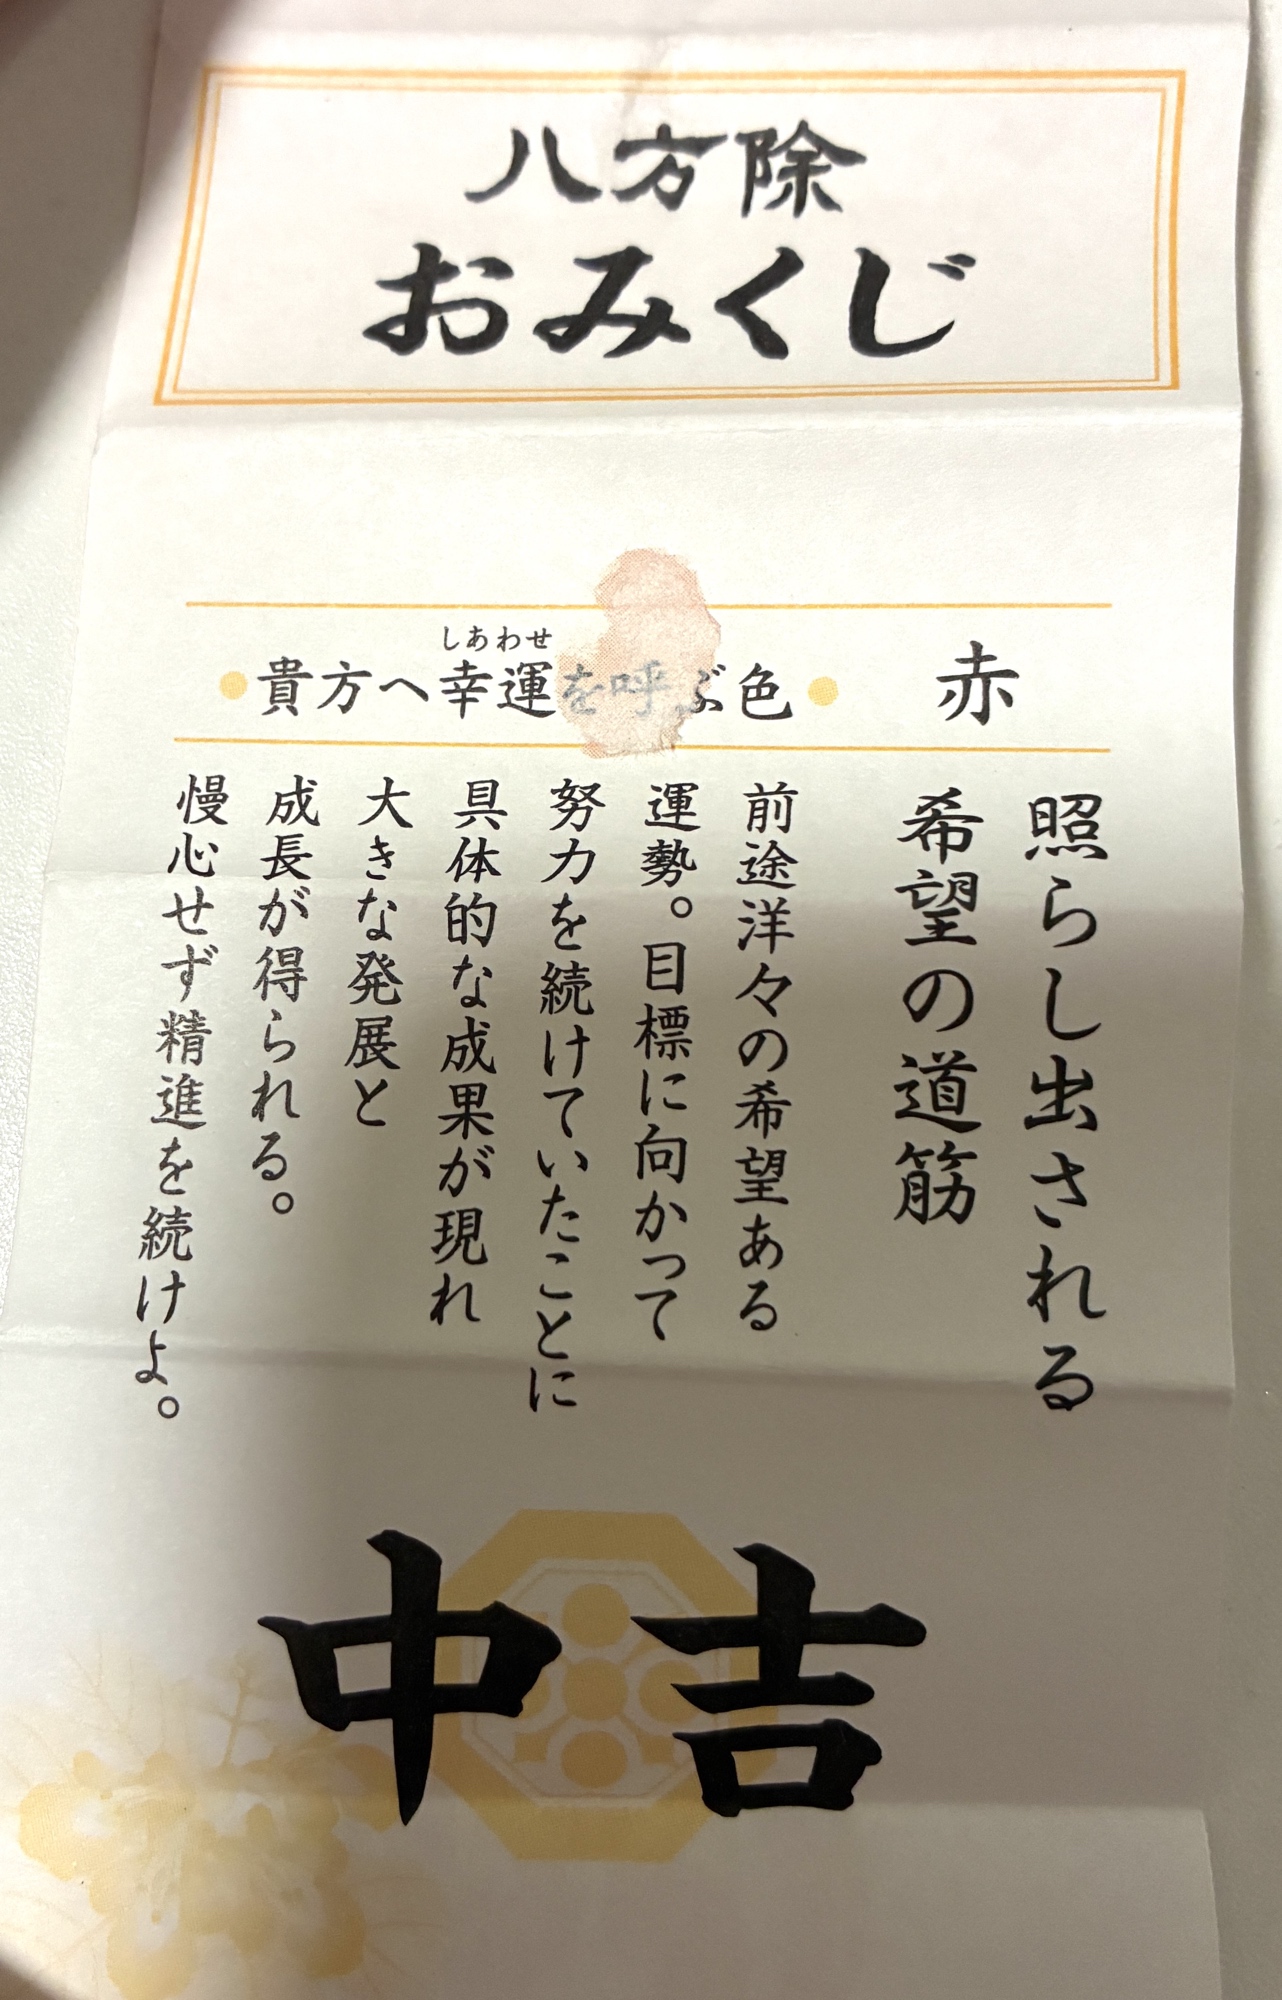 八方除
おみくじ
しあわせ
貴方へ幸運を呼ぶ色
赤
照らし出される
希望の道筋
前途洋々の希望ある
運勢。目標に向かって
努力を続けていたことに
具体的な成果が現れ
大きな発展と
成長が得られる。
慢心せず精進を続けよ。
中吉